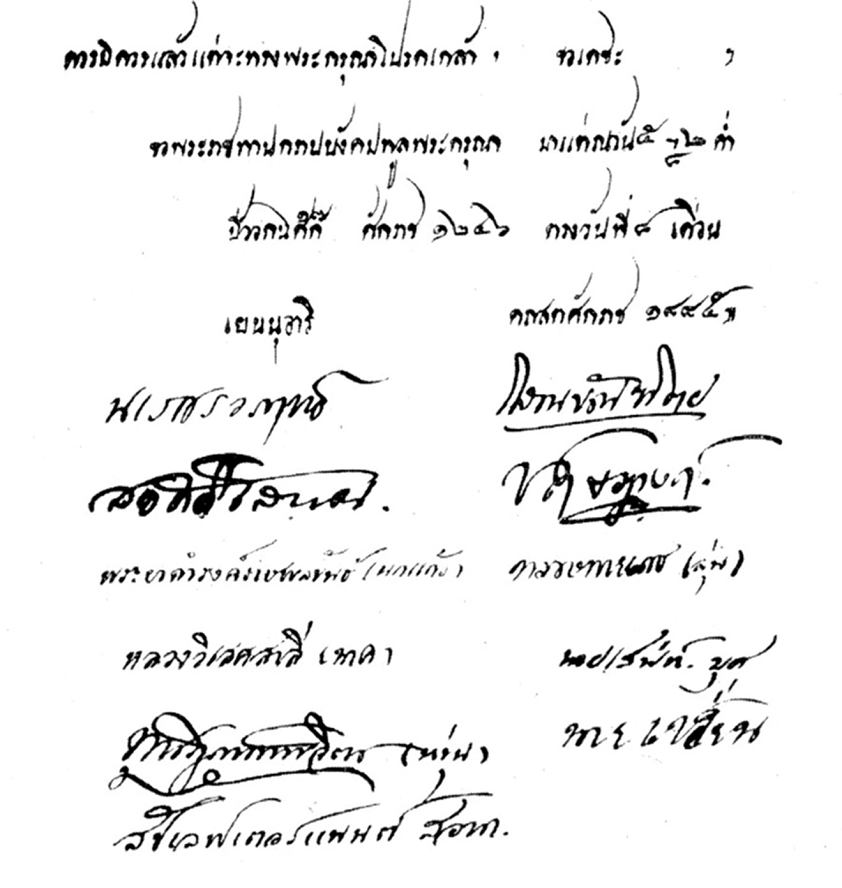 ควรมิควรแล้วแต่จะทรงพระกรุณาโปรดเกล้า ฯ ขอเดชะ ฯ
ขอพระราชทานกราบบังคมทูลพระกรุณา มาแต่ณวัน ๕ ๒ ค่ำ
ศักราช ๑๒๔๖ ตรงวันที่ ๘ เดือน
เยนนุอารี ๑๘๘๕
นเรศรวรฤทธิ์ โสณบัณฑิตย
สวัสดิโสภณ. ปฤษฎางค์.
(นกแก้ว) (สุ่น)
หลวงวิเสศสาลี (นาค) บุศ
ขุนปฏิภาณพิจิตร (หุ่น) นายเปลี่ยน
สัปเลฟเตอรแนนต์ สอาด.